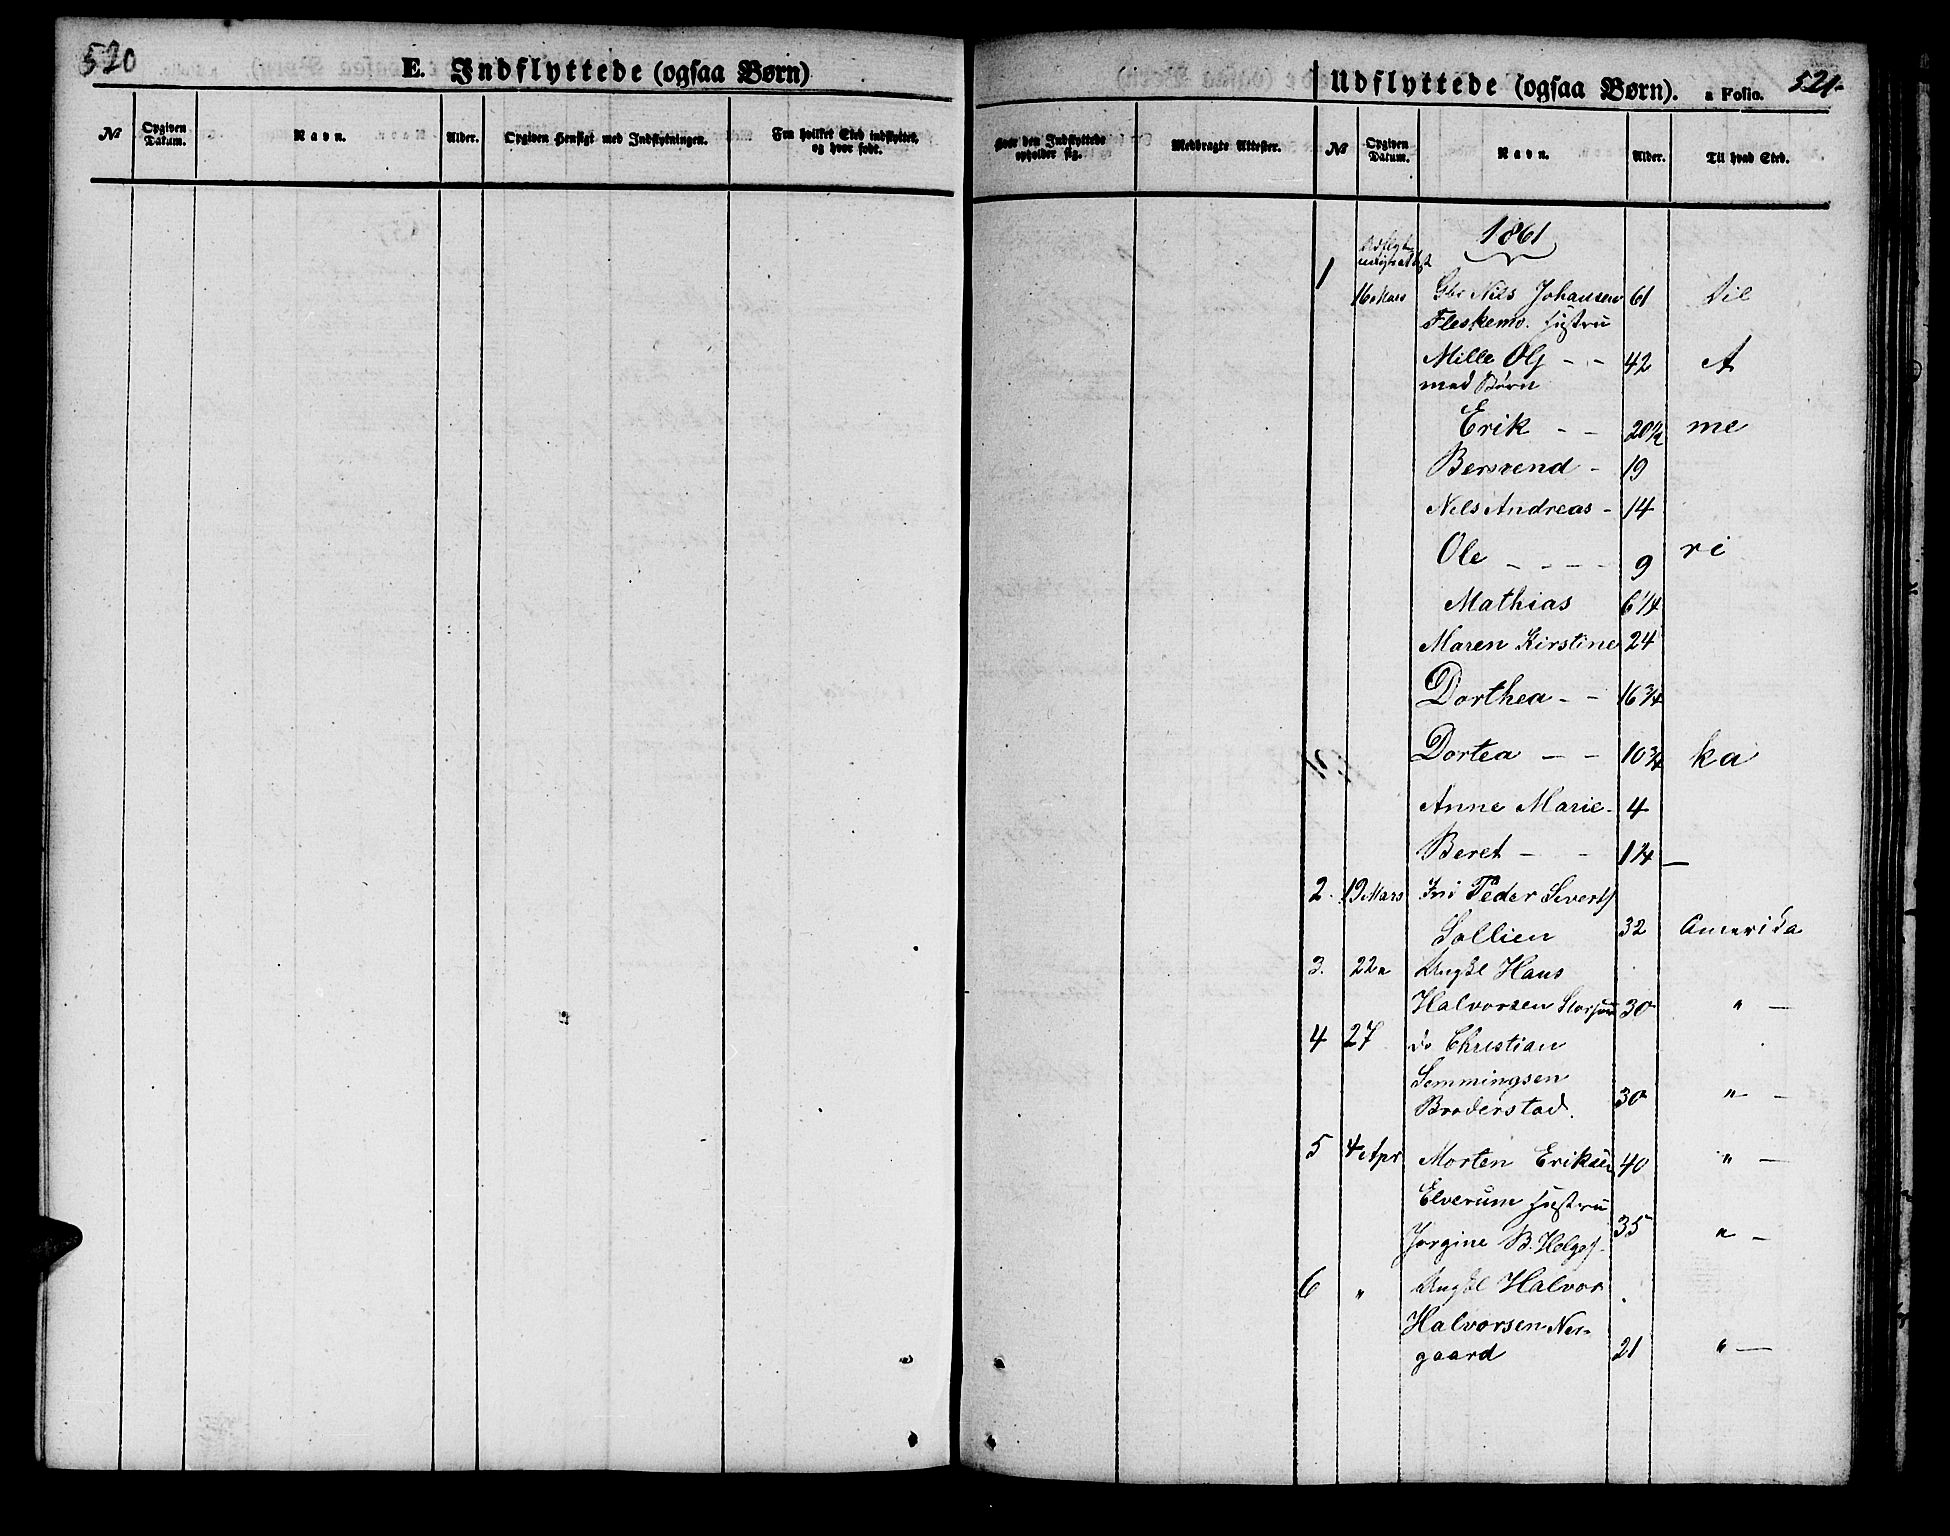 520
E. Indflyttede (ogsaa Børn)
№
Opgiven Datum.
Navn.
Alder.
Opgiven Hensigt med Indflytningen.
Fra hvilket Sted indflyttet, og hvor født.
Udflyttede (ogsaa Børn).
a Folio.
521.
Hvor den Indflyttede opholder sig.
Medbragte Attester.
№
Opgiven Datum.
Navn.
Alder.
Til hvad Sted.
1861
1
16 Mars Gbr Nils Johansen 61 til
Fleskemo. Hustru
Mille Ols - - 42 A
med Børn
Erik - - 20 1/2 me
Bersvend - 19
Nils Andreas - 14
Ole - - - - 9 ri
Mathias 6 1/4
Maren Kirstine 24
Dorthea - - 16 3/4
Dortea - - 10 3/4 ka
Anne Marie - 4
Beret - -
2. 19 Mars Ind Peder Siverts
Sollien 32 Amerika
3. 22 " Ungkl Hans
Halvorsen 30 " -
4 27 do Christian
Semmingsen
Broderstad. 30 " -
5 4 Apr Morten Eriksen 40 " -
Elverum Hustru
Jørgine B. Helges. 35 " -
6 " Ungkl Halvor
Halvorsen Nes-
gaard 21 " -